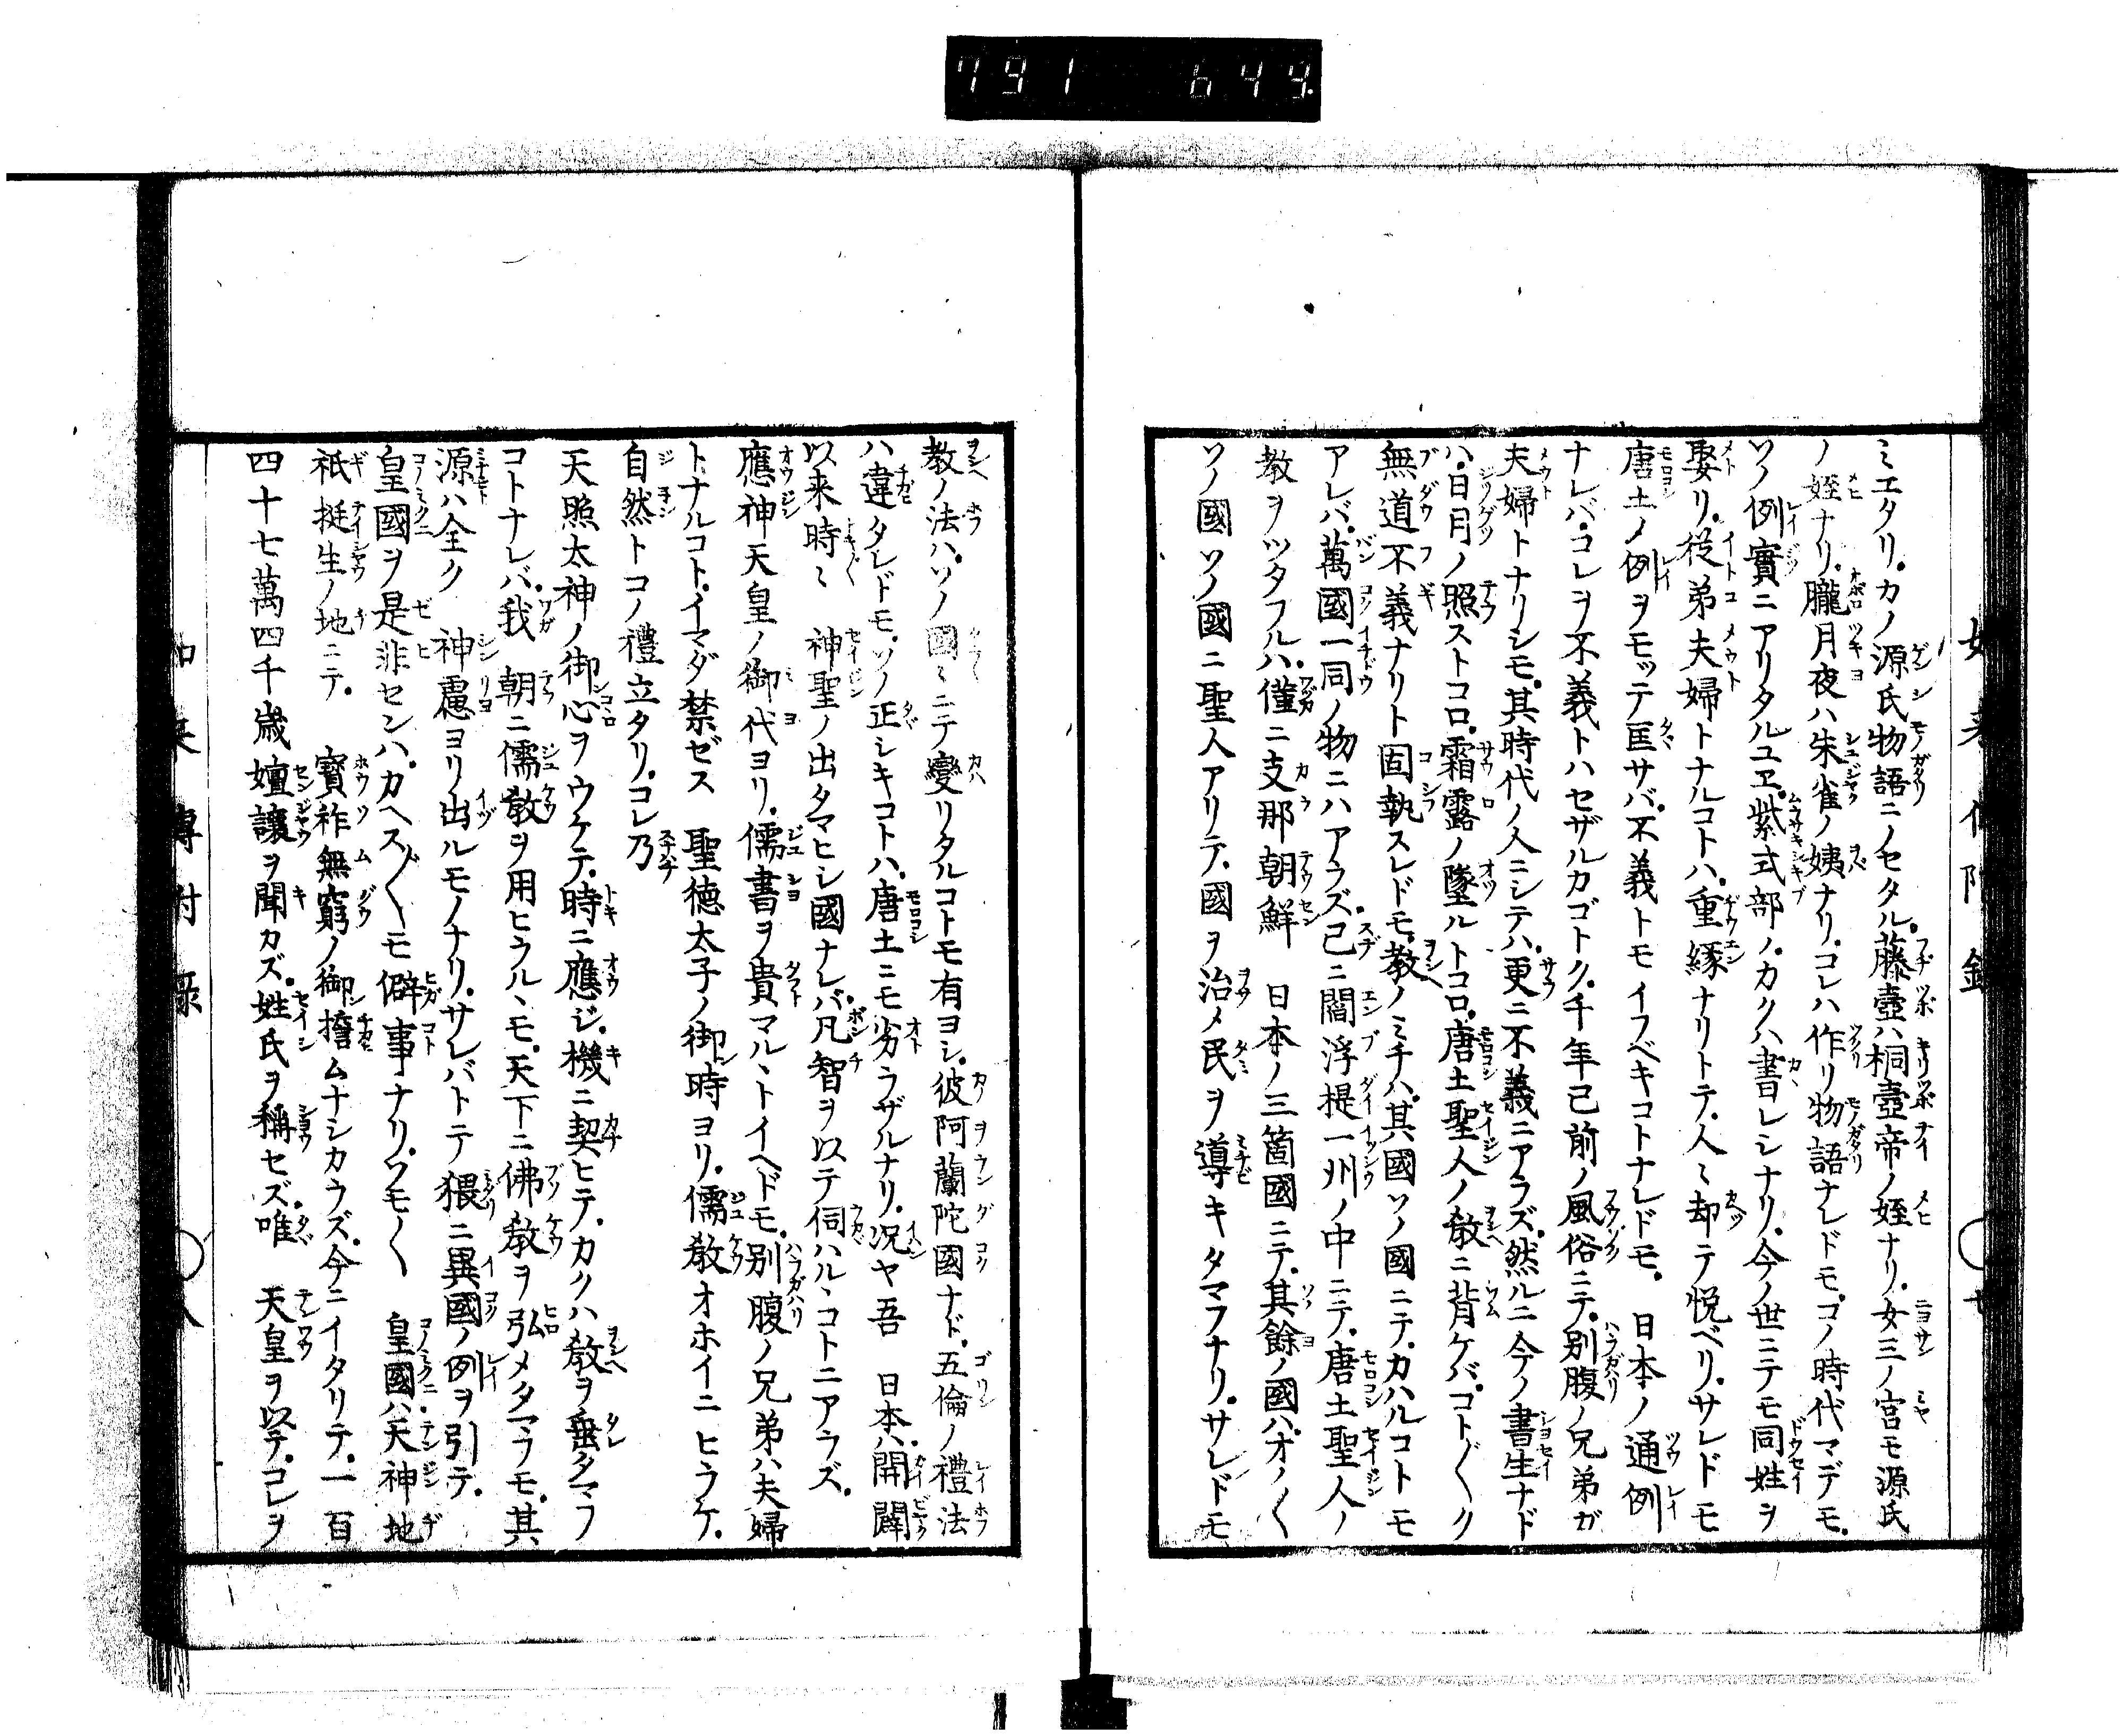 791 644.
ミエタリ。カノ源氏物語ニノセタル。藤壺ハ桐壺帝ノ姪ナリ。女三ノ宮モ源氏
ノ姪ナリ。朧月夜ハ朱雀ノ姨ナリ。コレハ作リ物語ナレドモ。コノ時代マデモ。
ソノ例實ニアリタルユヱ。紫式部ノ。カクハ書レシナリ。今ノ世ニテモ同姓ヲ
娶リ。従弟夫婦トナルコトハ。重縁ナリトテ。人〻却テ悦ベリ。サレドモ
唐土ノ例ヲモッテ匡サバ。不義トモイフベキコトナレドモ。 日本ノ通例
ナレバ。コレヲ不義トハセザルカゴトク。千年已前ノ風俗ニテ。別腹ノ兄弟ガ
夫婦トナリシモ。其時代ノ人ニシテハ。更ニ不義ニアラズ。然ルニ今ノ書生ナド
ハ。日月ノ照ストコロ。霜露ノ墜ルトコロ。唐土聖人ノ敎ニ背ケバ。コト〴〵ク
無道不義ナリト固執スレドモ。教ノミチハ。其國ソノ國ニテ。カハルコトモ
アレバ。萬國一同ノ物ニハアラズ。已ニ閻浮提一州ノ中ニテ。唐土聖人ノ
教ヲツタフルハ。僅ニ支那朝鮮 日本ノ三箇國ニテ。其餘ノ國ハ。オノ〳〵
ソノ國ソノ國ニ聖人アリテ。國ヲ治メ民ヲ導キタマフナリ。サレドモ
教ノ法ハ。ソノ國〻ニテ變リタルコトモ有ヨシ。彼阿蘭陀國ナド。五倫ノ禮法
ハ違タレドモ。ソノ正シキコトハ。唐土ニモ劣ラザルナリ。况ヤ吾 日本ハ。開闢
以来時〻 神聖ノ出タマヒシ國ナレバ。凡智ヲ以テ伺ハルヽコトニアラズ。
應神天皇ノ御代ヨリ。儒書ヲ貴マルヽトイヘドモ。別腹ノ兄弟ハ夫婦
トナルコト。イマダ禁ゼス 聖徳太子ノ御時ヨリ。儒敎オホイニヒラケ。
自然トコノ禮立タリ。コレ乃
天照太神ノ御心ヲウケテ。時ニ應ジ。機ニ契ヒテ。カクハ敎ヲ垂タマフ
コトナレバ。我 朝ニ儒敎ヲ用ヒラルヽモ。天下ニ佛敎ヲ弘メタマフモ。其
源ハ全ク 神慮ヨリ出ルモノナリ。サレバトテ猥ニ異國ノ例ヲ引テ。
皇國ヲ是非センハ。カヘス〴〵モ僻事ナリ。ソモ〳〵 皇國ハ。天神地
祇挺生ノ地ニテ。 寳祚無窮ノ御誓ムナシカラズ。今ニイタリテ。一百
四十七萬四千歳嬗讓ヲ聞カズ。姓氏ヲ稱セズ。唯 天皇ヲ以テ。コレヲ